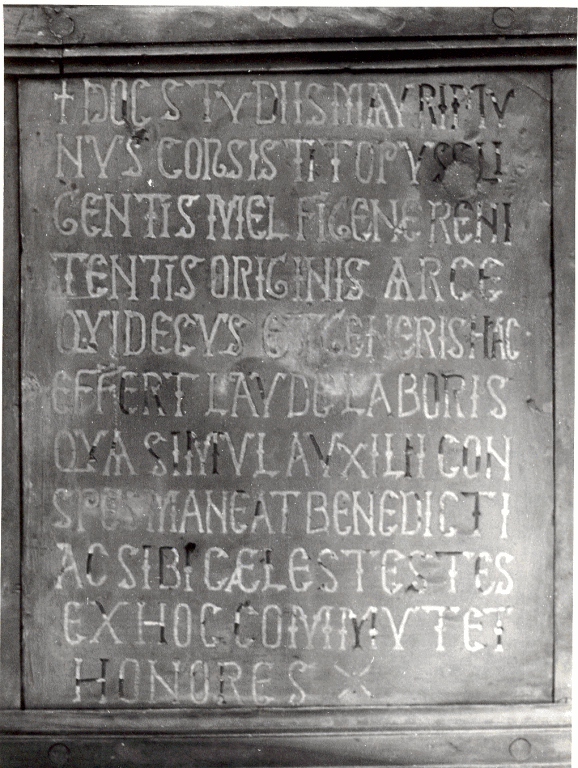 + HOC STVDIIS MAVRI MV
NVS CONSISTIT OPVS GLI
GENTIS MELFIGENE RENI
TENTIS ORIGINIS ARCE
QVI DECVS ET GENERIS HAC
EFFERT LAVDE LABORIS
QVA SIMVL AVXILII CON
SPES MANEAT BENEDICTI
AC SIBI CÆLESTES TES
EX HOC COMMVTET
HONORES X